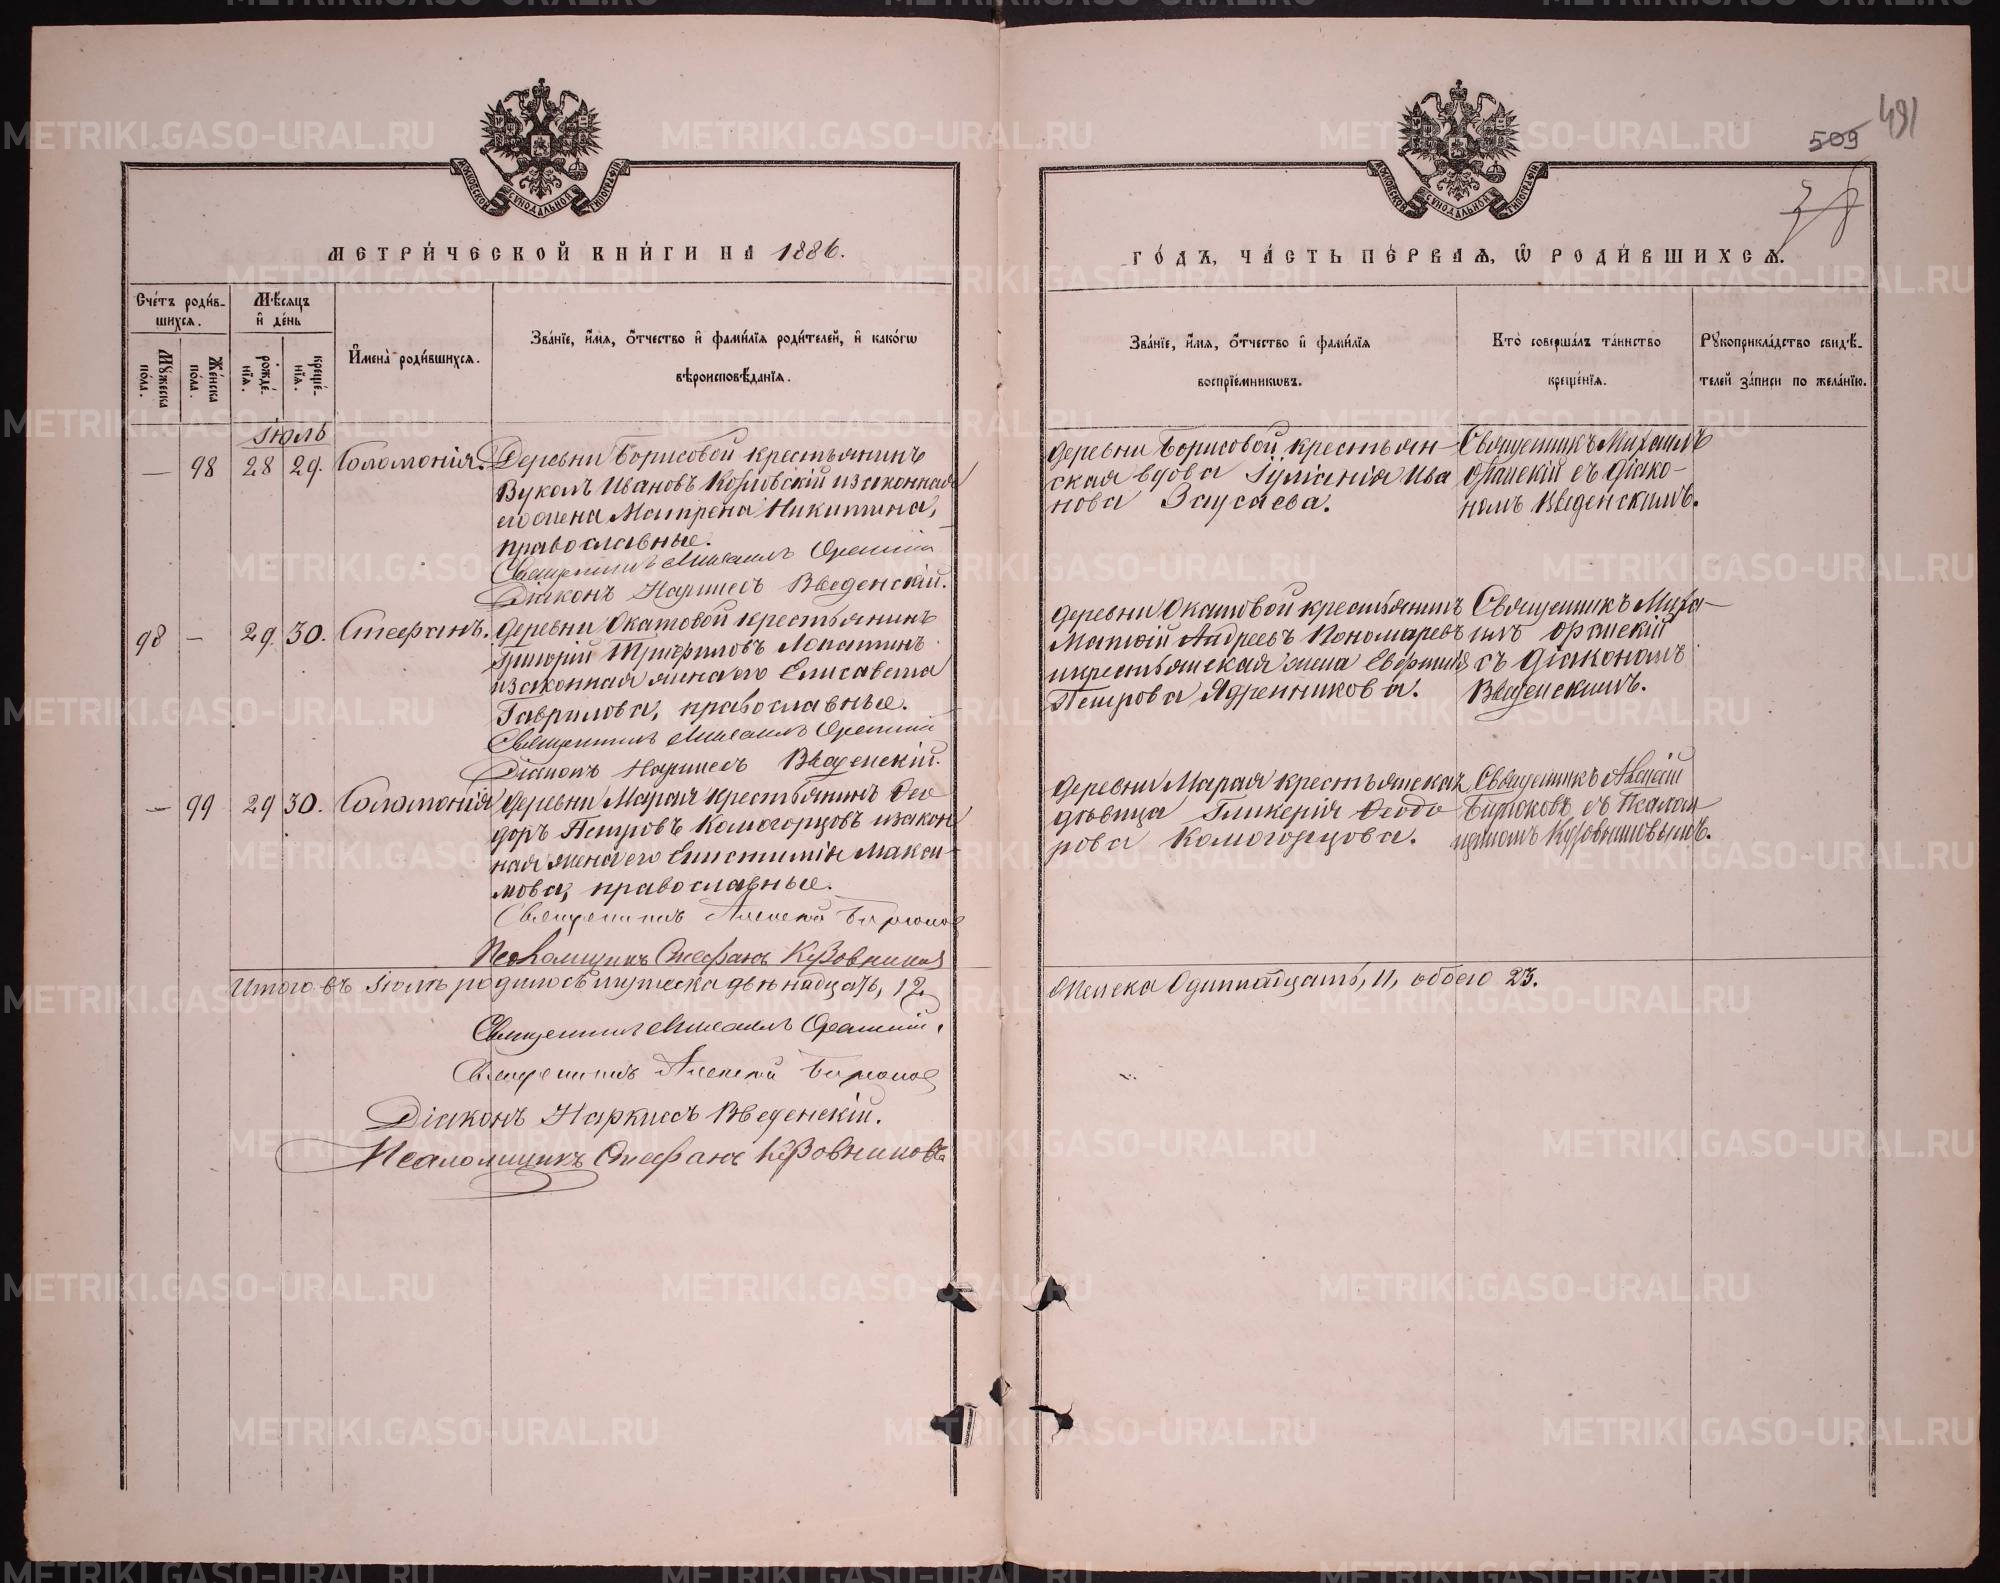 491
509
МОСКОВСКОЙ СѴНОДАЛЬНОЙ ТИПОГРАФІИ
МОСКОВСКОЙ СѴНОДАЛЬНОЙ ТИПОГРАФІИ
МЕТРИ́ЧЕСКОЙ КНИ́ГИ НА 1886.
ГО́ДЪ, ЧА́СТЬ ПЕ́РВАѦ, Ѿ РОДИ́ВШИХСѦ.
Сче́тъ роди́в-
шихся.
Мѣ́сяцъ
и҆ де́нь
Мꙋжеска по́ла.
Же́нска по́ла.
рожде́-
нїя.
креще́-
нїя.
И҆мена̀ роди́вшихся.
Зва́нїе, и҆́мя, ѻ҆́тчество и҆ фами́лїя роди́телей, и҆ како́гѡ
вѣроисповѣ́данїя.
Зва́нїе, и҆́мя, ѻ҆́тчество и҆ фами́лїя
воспрїе́мникѡвъ.
Кто̀ соверша́лъ та́инство
креще́нїя.
Рꙋкоприкла́дство свидѣ́-
телей за́писи по жела́нїю.
Іюль
— 98 28 29. Соломонія.
Деревни Борисовой крестьянинъ
Вуколъ Ивановъ Козловскій и законная
его жена Матрена Никитина,
православные.
Священникъ Михаилъ
Діаконъ Наркисъ Введенскій.
деревни Борисовой крестьян-
ская вдова Іуліанія Ива
нова Заусаева.
Священникъ Михаилъ
съ діако-
номъ Введенскимъ.
98 — 29. 30. Стефанъ.
деревни Окатовой крестьянинъ
Григорій Трифиловъ Лопатинъ
и законная жена его Елисавета
Гаврилова, православные.
Священникъ Михаилъ
Діаконъ Наркисъ Введенскій.
деревни Окатовой крестьянинъ
Матѳій Андреевъ Пономаревъ
и крестьянская жена
Петрова Ядренникова.
Священникъ Миха-
илъ
съ діакономъ
Введенскимъ.
— 99 29 30. Соломонія
деревни Марая крестьянинъ Ѳео
доръ Петровъ Комогорцовъ и закон
ная жена его Епистимія Макси-
мова, православные.
Священникъ Алексій Бирюков
Псаломщикъ Стефанъ
деревни Марая крестьянская
дѣвица Гликерія Ѳеодо
рова Комогорцова.
Священникъ Алексій
Бирюковъ съ Псалом
щикомъ
Итого въ Іюлѣ родилось мужеска двѣнадцать, 12,
женска Одиннадцать, 11, обоего 23.
Священникъ Михаилъ
Священникъ Алексій Бирюков
Діаконъ Наркисъ Введенскій.
Псаломщикъ Стефанъ
METRIKI.GASO-URAL.RU